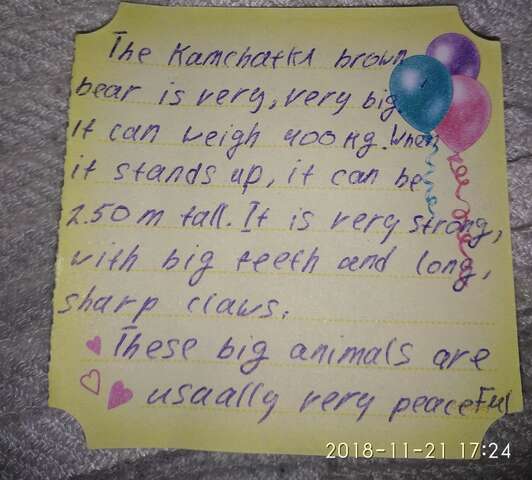 The Kamchatka brown
bear is very, very big.
It can weigh 400 kg. When
it stands up, it can be
2.50 m tall. It is very strong,
with big teeth and long,
sharp claws.
These big animals are
usually very peaceful
2018-11-21 17:24